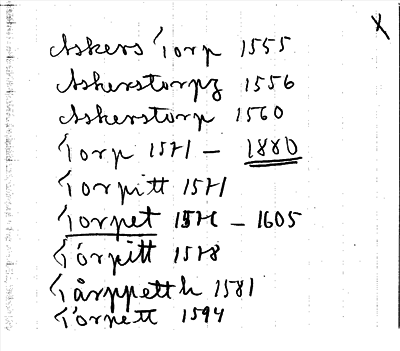 Askers Torp 1555
Askerstorpz 1556
Askerstorp 1560
Torp 1571 – 1880
Torpitt 1571
Torpet 1576 – 1605
Tórpitt 1578
Tårppetth 1581
Torpett 1594